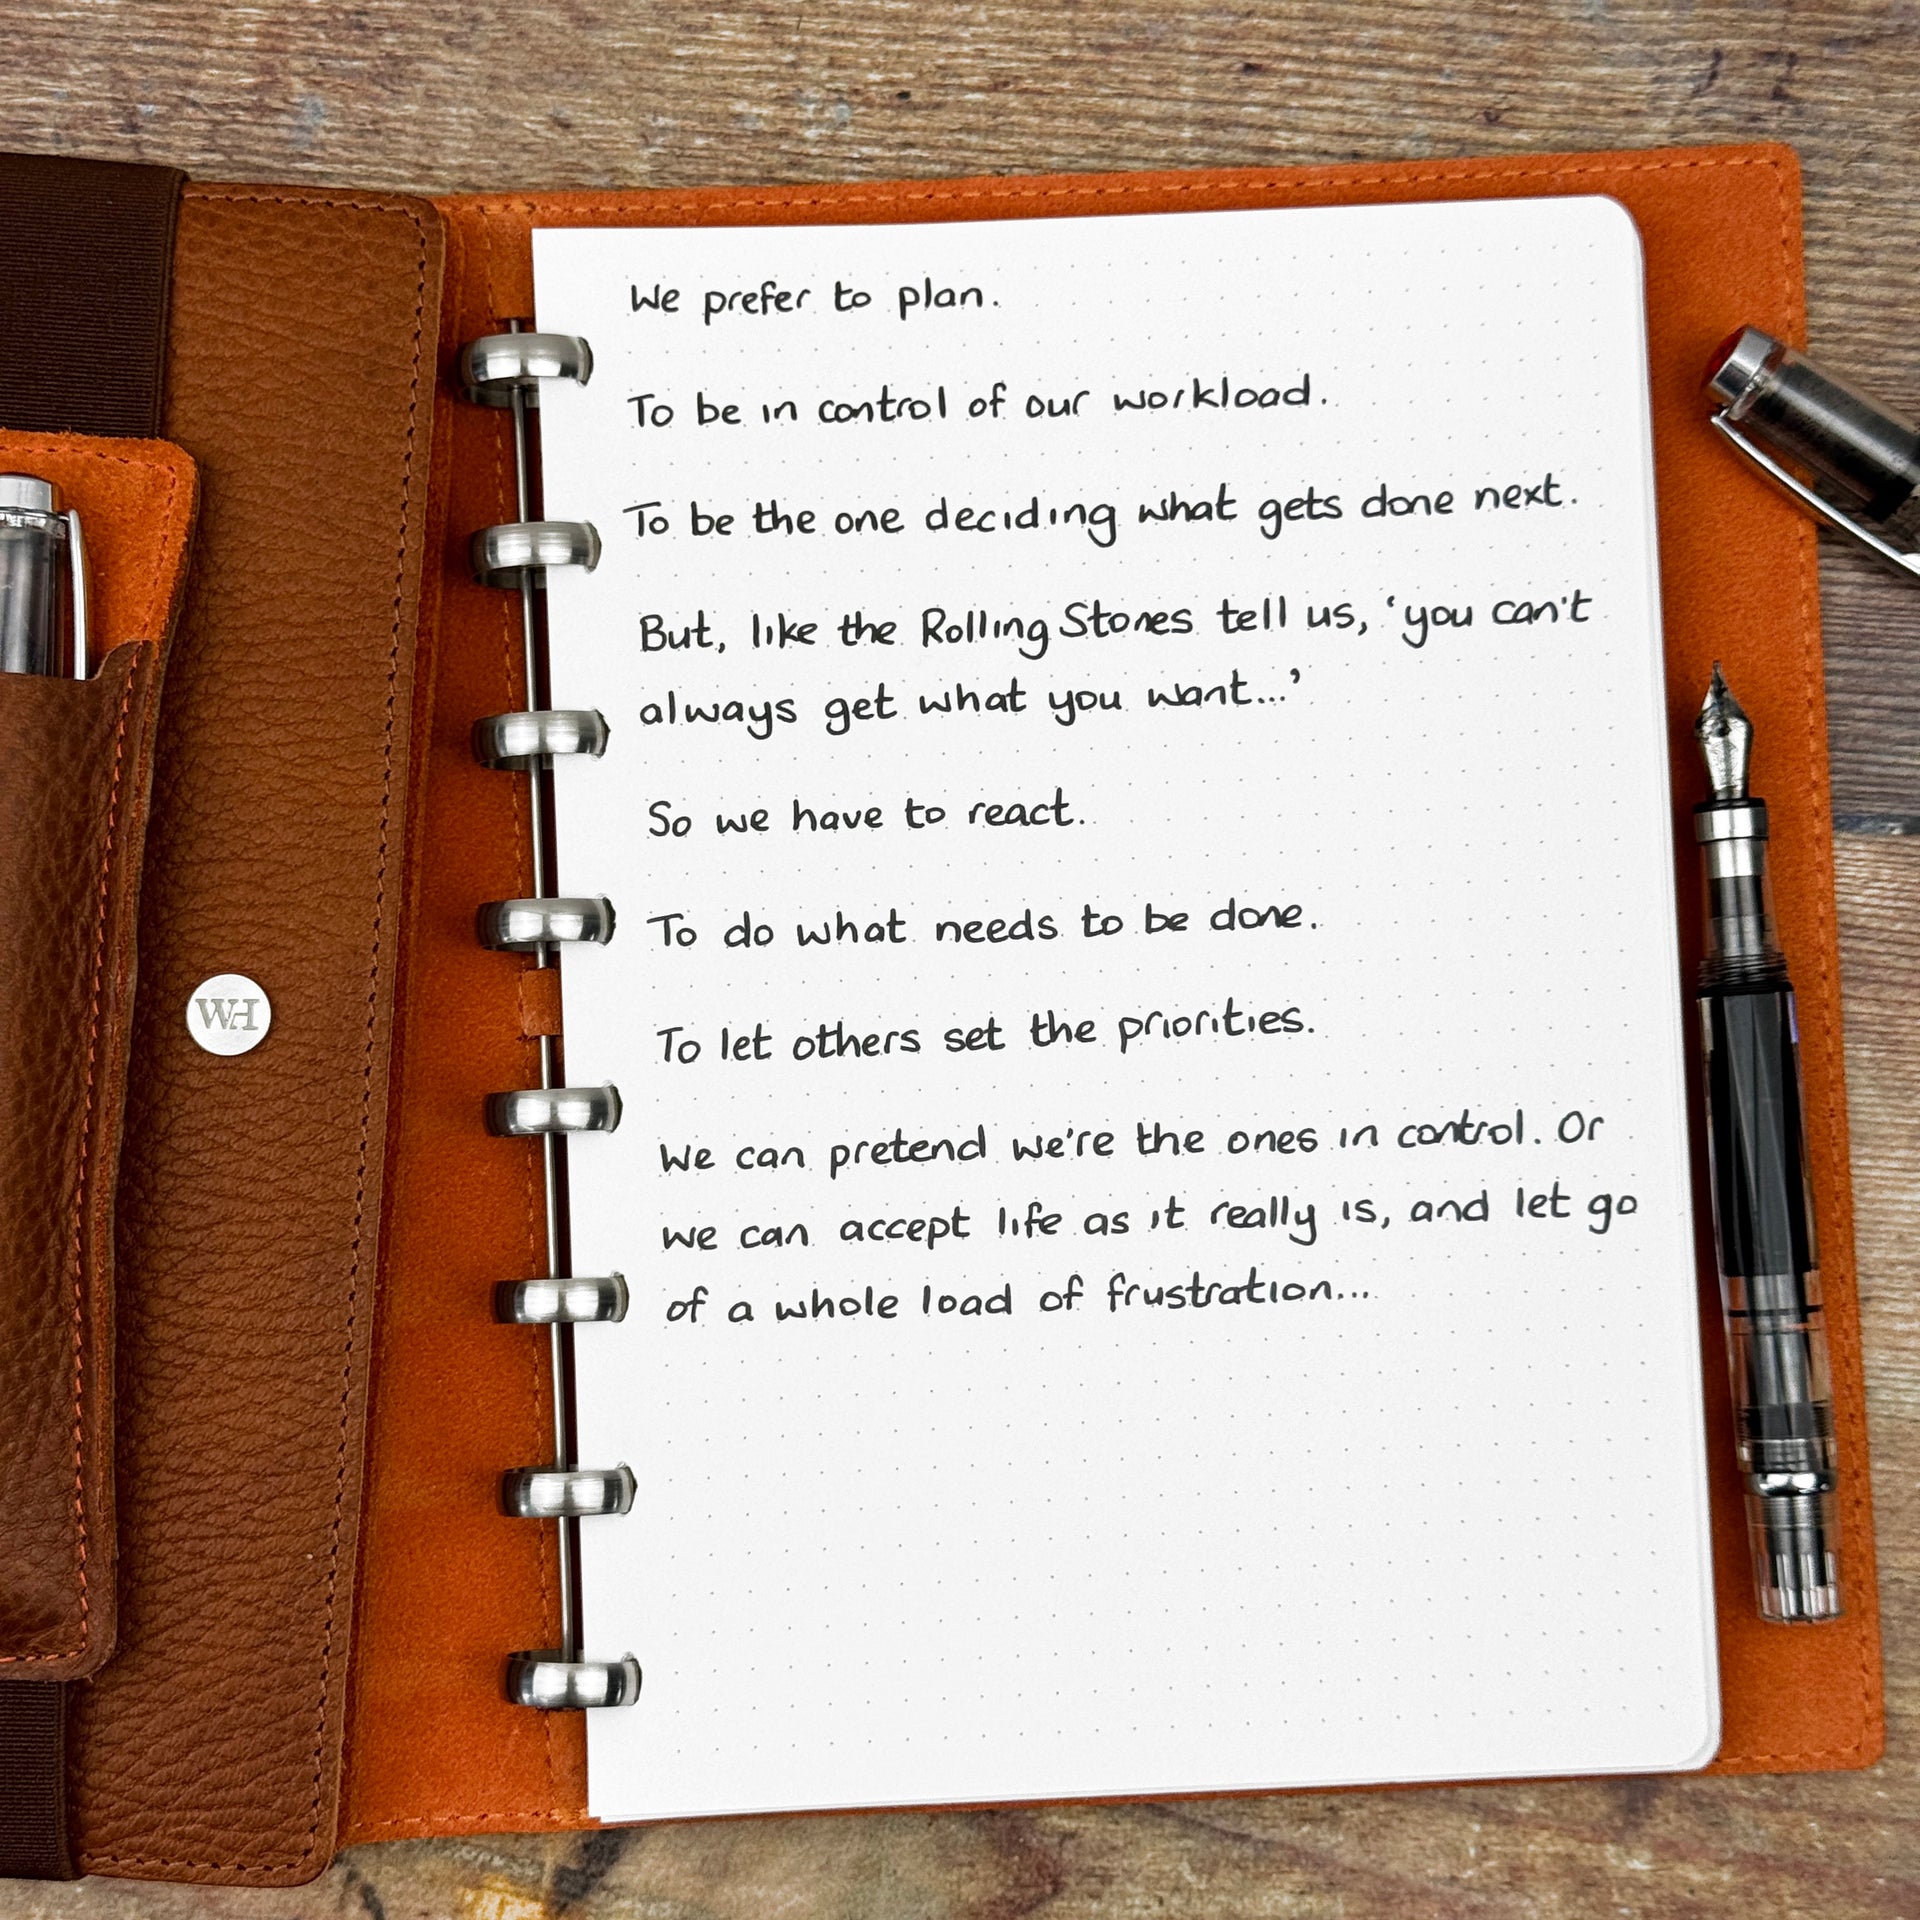 We prefer to plan.
To be in control of our workload.
To be the one deciding what gets done next.
But, like the Rolling Stones tell us, 'you can't
always get what you want...'
So we have to react.
To do what needs to be done.
To let others set the priorities.
We can pretend we're the ones in control. Or
we can accept life as it really is, and let go
of a whole load of frustration...
WH